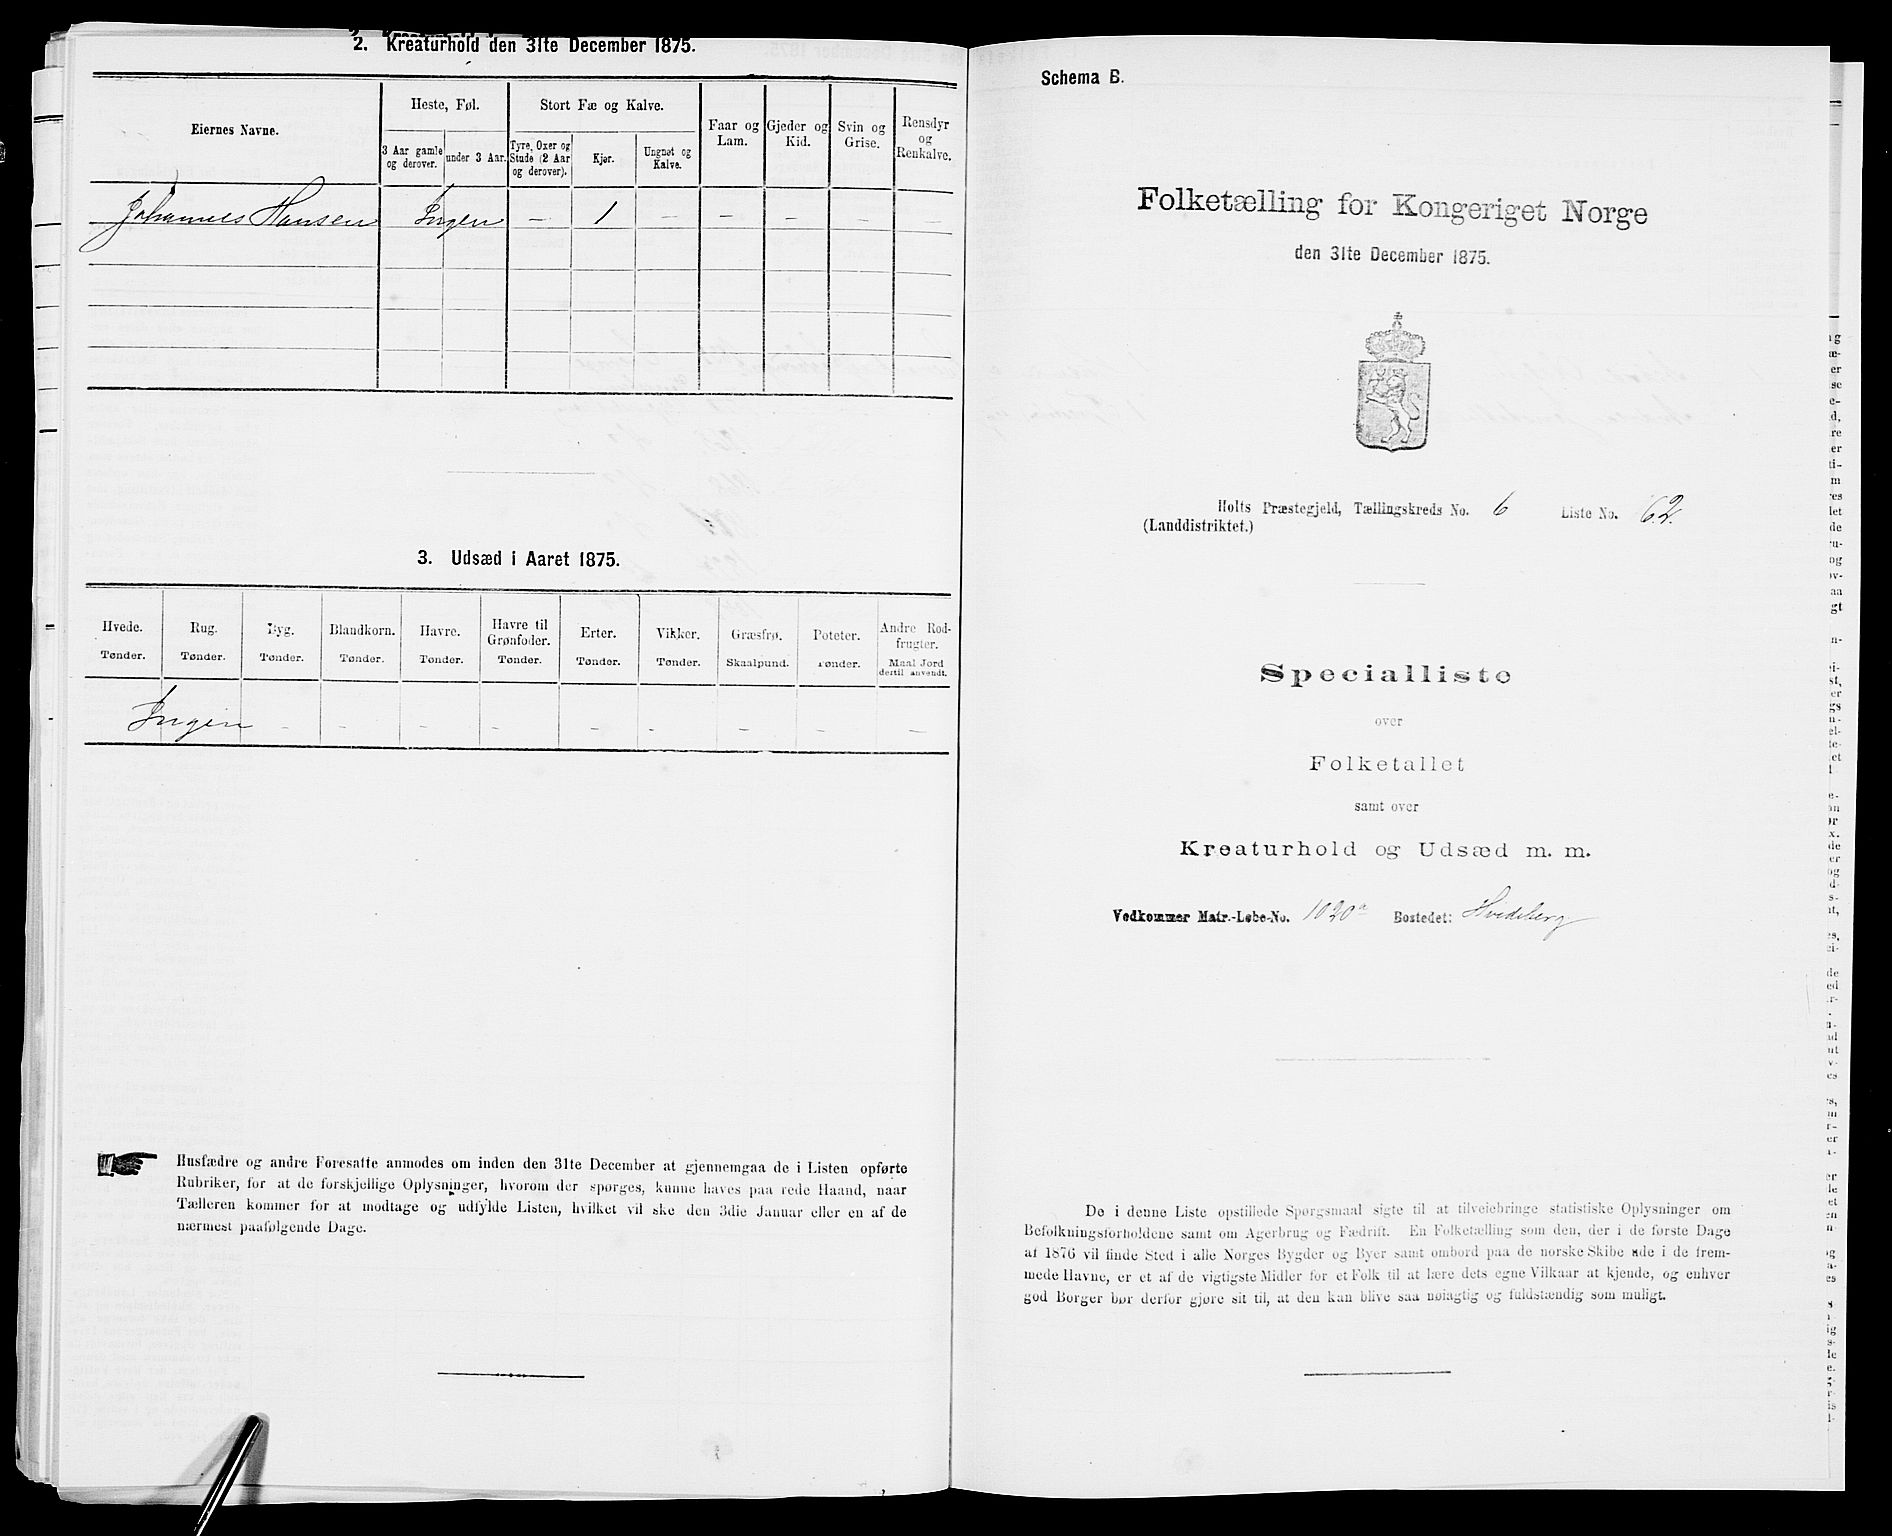 2. Kreaturhold den 31te December 1875.
Eiernes Navne.
Heste, Føl.
Stort Fæ og Kalve.
Faar og Lam.
Gjeder og Kid.
Svin og Grise.
Rensdyr og Renkalve.
3 Aar gamle og derover.
under 3 Aar.
Tyre, Oxer og Stude (2 Aar og derover).
Kjør.
Ungnøt og Kalve.
Johannes Hansen Ingen – 1 – – – – –
3. Udsæd i Aaret 1875.
Hvede. Rug. Byg. Blandkorn. Havre. Havre til Grønfoder. Erter. Vikker. Græsfrø. Poteter. Andre Rodfrugter.
Tønder. Tønder. Tønder. Tønder. Tønder. Tønder. Tønder. Tønder. Skaalpund. Tønder. Maal Jord dertil anvendt.
Ingen - - - - - - - - -
Husfædre og andre Foresatte anmodes om inden den 31te December at gjennemgaa de i Listen opførte
Rubriker, for at de forskjellige Oplysninger, hvorom der spørges, kunne haves paa rede Haand, naar
Tælleren kommer for at modtage og udfylde Listen, hvilket vil ske den 3die Januar eller en af de
nærmest paafølgende Dage.
Schema B.
Folketælling for Kongeriget Norge
den 31te December 1875.
Holts Præstegjeld, Tællingskreds No. 6 Liste No. 62.
(Landdistriktet.)
Specialliste
over
Folketallet
samt over
Kreaturhold og Udsæd m. m.
Vedkommer Matr.-Løbe-No. 1020a Bostedet: Hvedeberg
De i denne Liste opstillede Spørgsmaal sigte til at tilveiebringe statistiske Oplysninger om
Befolkningsforholdene samt om Agerbrug og Fædrift. En Folketælling som den, der i de første Dage
af 1876 vil finde Sted i alle Norges Bygder og Byer samt ombord paa de norske Skibe ude i de frem-
mede Havne, er et af de vigtigste Midler for et Folk til at lære dets egne Vilkaar at kjende, og enhver
god Borger bør derfor gjøre sit til, at den kan blive saa nøiagtig og fuldstændig som muligt.